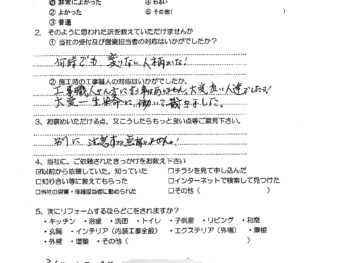 ① 非常によかった ④ わるい
② よかった ⑤ その他(
③ 普通
2. そのように思われた訳を教えていただけませんか
① 当社の受付及び営業担当者の対応はいかがでしたか?
何時でも 変りない人柄かな!
② 施工時の工事職人の対応はいかがでしたか?
工事職人さん
大変一生懸命に働いて戴きました。
3、お褒めいただける点、又こうしたらもっと良い点等ご意見下さい。
別に 注意する
4、当社に、ご依頼されたきっかけをお教え下さい
☑以前から依頼していた。知っていた □チラシを見て申し込んだ
□知り合い等に教えてもらった □インターネットで検索して見つけた
□当社の営業・準積担当者に勧められた □その他(
5、次にリフォームするならどこをされますか?
・キッチン ・浴室 ・洗面 ・トイレ ・子供室 ・リビング ・和室
・玄関 ・インテリア(内装工事全般) ・エクステリア(外構) ・屋根
・外壁 ・増築 ・その他(